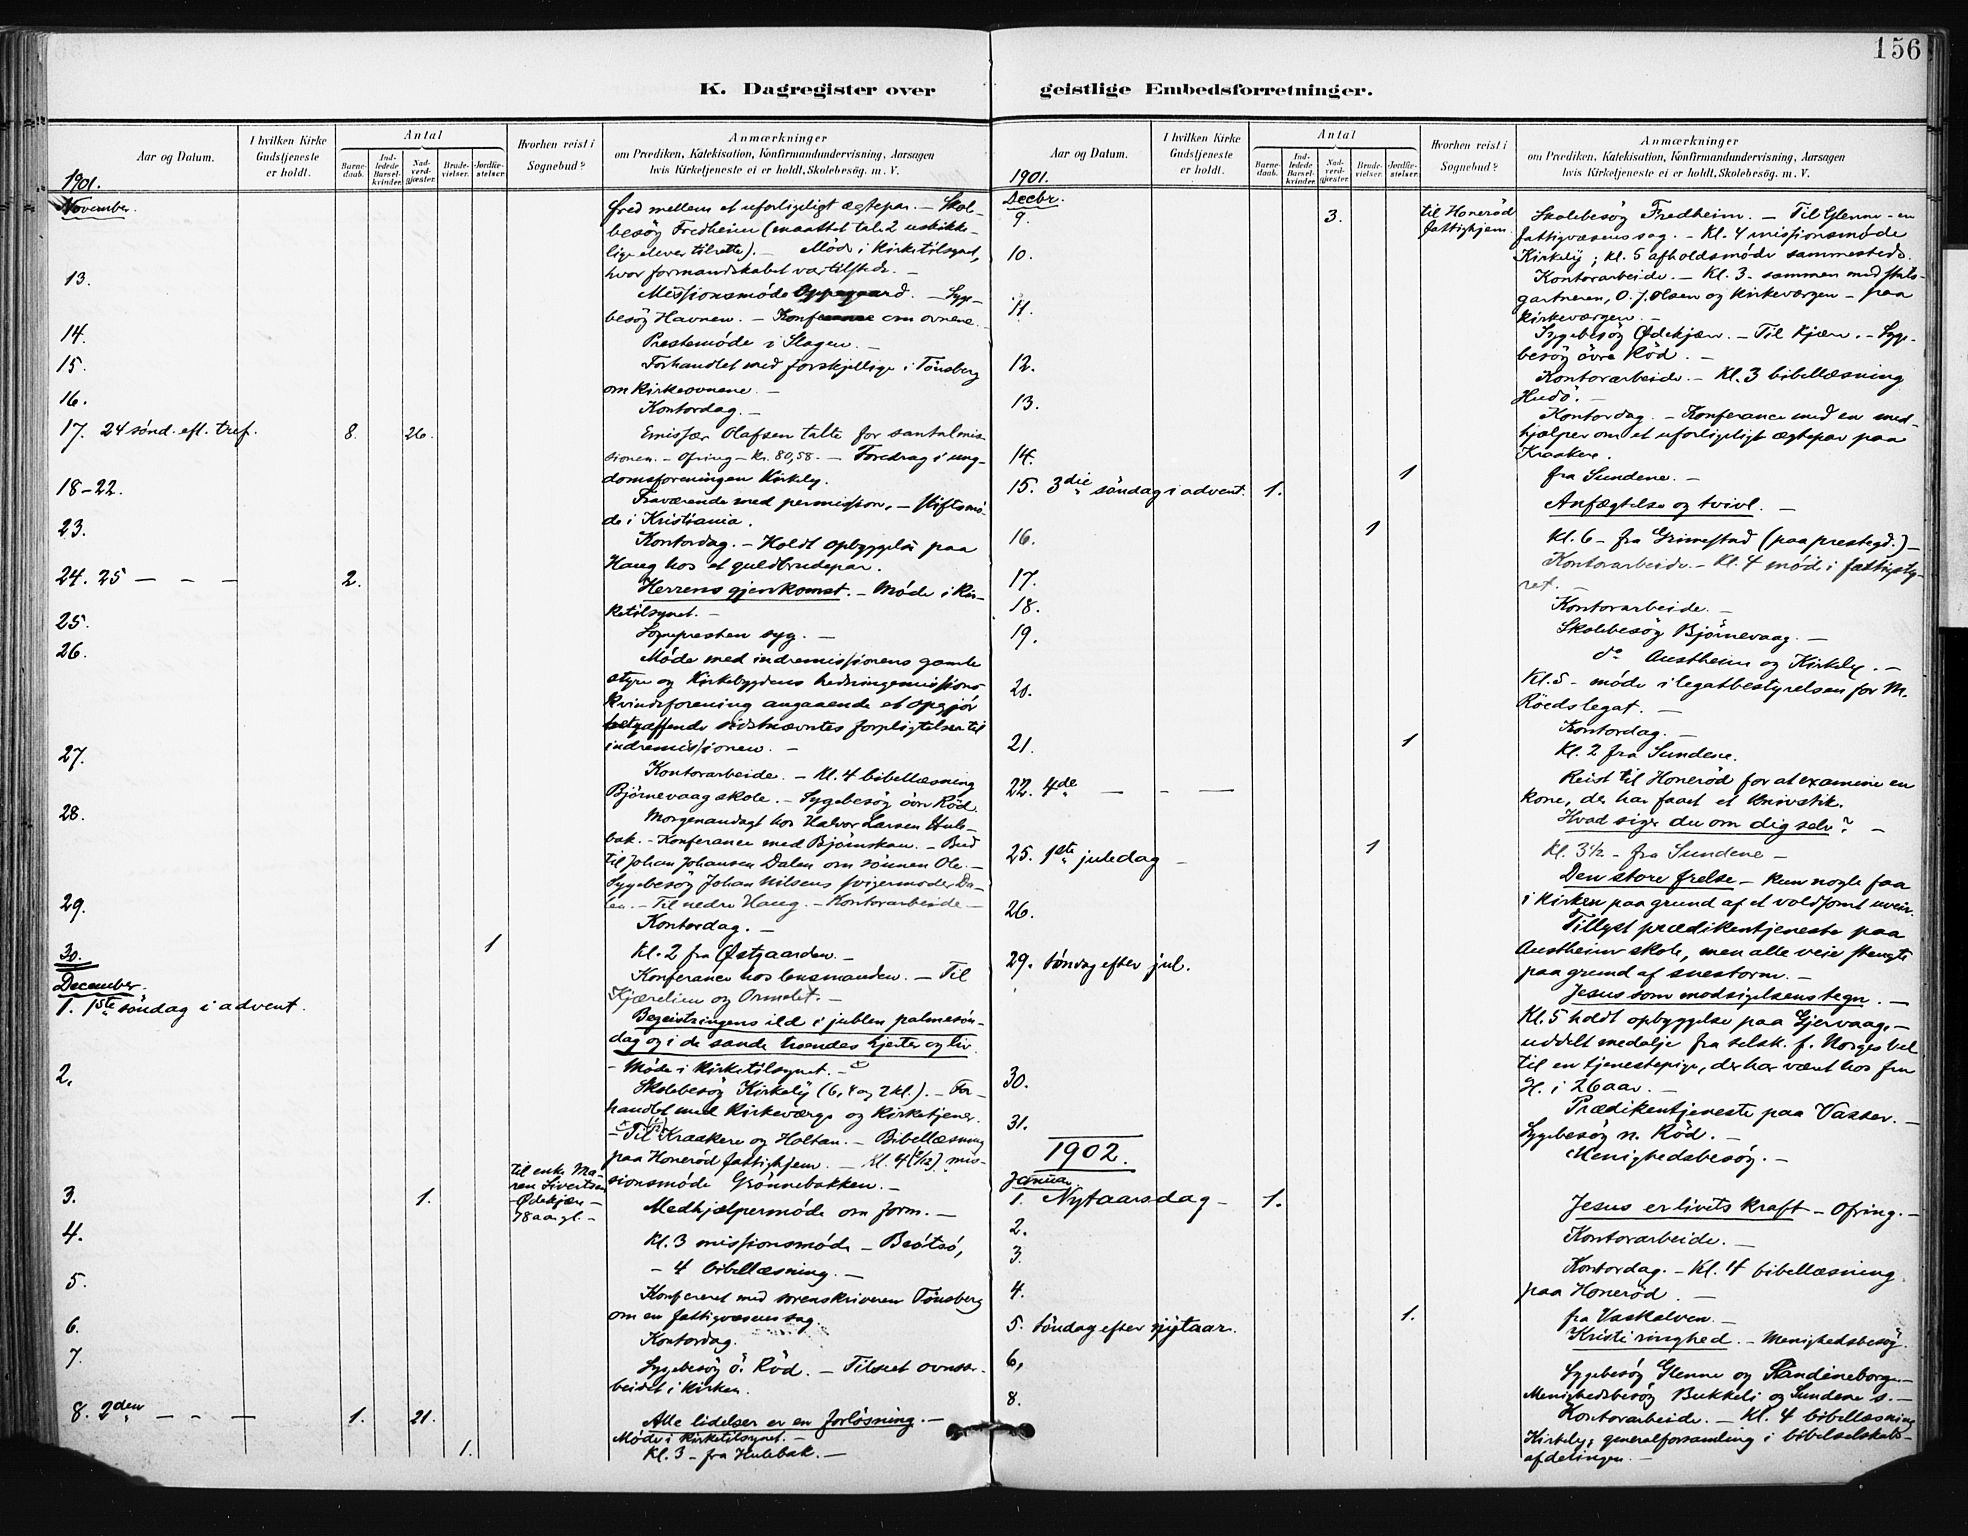 156
K. Dagregister over
geistlige Embedsforretninger.
Aar og Datum.
I hvilken Kirke Gudstjeneste er holdt.
Antal
Barnedaab.
Indledede Barselkvinder.
Nadverdgjæster.
Brudevielser.
Jordfæstelser.
Hvorhen reist i Sognebud?
Anmærkninger
om Prædiken, Katekisation, Konfirmandundervisning, Aarsagen
hvis Kirketjeneste ei er holdt, Skolebesøg. m. V.
1901.
November.
fred mellem et uforligeligt ægtepar. — Skol-
besøg Fredheim (maattet tale 2 uskikke-
lige elever tilrette). — Møde i Kirketilsynet,
hvor formandskabet var tilstede. —
13.
Missionsmøde Oppegaard. — Syge-
besøg Havnen. — Konference om ovnene.
14.
Prestemøde i Slagen. —
15.
Forhandlet med forskjellige i Tönsberg
om kirkeovnene. —
16.
Kontordag. —
17. 24 sönd. eft. tref. 8. 26.
Emissær Olafsen talte for santalmis-
sionen. — Ofring — kr. 80,58. — Foredrag i ung-
domsforeningen Kirkely.
18–22.
Fraværende med permission. — Stiftsmø-
de i Kristiania.
23.
Kontordag. — Holdt opbyggelse paa
Haug hos et guldbrudepar.
24. 25 — — — 2.
Herrens gjenkomst. — Møde i kir-
ketilsynet. —
25.
Sognepresten syg. —
26.
Møde med indremissionens gamle
styre og Kirkebygdens hedningemissions-
kvindeforening angaaende et opgjör
betræffende sidstnævntes forpligtelser til
indremissionen. —
27.
Kontorarbeide. — Kl. 4 bibellæsning
Bjørnevaag skole. — Sygebesøg övre Röd.
28.
Morgenandagt hos Halvor Larsen Hule-
bak. — Konferance med Bjørnskau. — Bud
til Johan Johansen Dalen om sønnen Ole. —
Sygebesøg Johan Nilsens svigermoder Da-
len. — Til nedre Haug. — Kontorarbeide. —
29.
Kontordag. —
30. 1
Kl. 2 fra Østgaarden. —
Konferance hos lensmanden. — Til
Kjærelien og Ormelet. —
December.
1. 1ste söndag i advent.
Begeistringens ild i jublen palmesön-
dag og i de sande troendes hjerter og liv.
— Møde i kirketilsynet. —
2.
Skolebesøg Kirkely (6, 4 og 2 kl.). — For-
handlet med Kirkeværge og Kirketjener.
— Til Kraakere og Holtan. — Bibellæsning
paa Honerød fattighjem. — Kl. 4 (3/12) mis-
sionsmøde Grönnebakken. —
3. 1. til enke Ma-
ren Sivertsen
Ødekjær —
78 aar gl. —
Medhjælpermøde om form. —
4.
Kl. 3 missionsmøde — Bøtsö,
— 4 bibellæsning. —
5.
Konfereret med sorenskriveren Tönsberg
om en fattigvæsenssag.
6.
Kontordag.
7.
Sygebesøg ö. Röd. — Tilseet ovnsar-
beidet i kirken.
8. 2den — — — 1. 21.
Alle lidelser er en forløsning. —
Møde i kirketilsynet. —
1.
Kl. 3 — fra Hulebak. —
Aar og Datum.
I hvilken Kirke Gudstjeneste er holdt.
Antal
Barnedaab.
Indledede Barselkvinder.
Nadverdgjæster.
Brudevielser.
Jordfæstelser.
Hvorhen reist i Sognebud?
Anmærkninger
om Prædiken, Katekisation, Konfirmandundervisning, Aarsagen
hvis Kirketjeneste ei er holdt, Skolebesøg m. V.
1901.
Decbr.
9. 3. til Honerød
fattighjem.
Skolebesøg Fredheim. — Til Glenne — en
fattigvæsenssag. — Kl. 4 missionsmøde
Kirkely; kl. 5 afholdsmøde sammesteds.
10.
Kontorarbeide. — Kl. 3 — sammen med
gartneren, O. J. Olsen og Kirkeværgen — paa
kirkeværgen. —
11.
Sygebesøg Ødekjær. — Til Kjær. — Syge-
besøg övre Röd. —
12.
Kontorarbeide. — Kl. 3 bibellæsning
Hudö. —
13.
Kontordag. — Konferance med en med-
hjælper om et uforligeligt ægtepar paa
Kraakere.
14. 1
fra Sundene. —
15. 3die söndag i advent. 1.
Anfægtelse og tvivl. —
1
Kl. 6 — fra Grimestad (paa prestegd.) —
16.
Kontorarbeide. — Kl. 4 møde i fattigsty-
ret. —
17.
Kontorarbeide. —
18.
Skolebesøg Bjørnevaag. —
19.
do Austheim og Kirkely. —
Kl. 5 — møde i legatbestyrelsen for M.
Röeds legat. —
20.
Kontordag. —
21. 1
Kl. 2 fra Sundene.
Reist til Honerød for at examinere en
kone, der har faaet et knivstik.
22. 4de — — —
Hvad siger du om dig selv? —
1
Kl. 3½ — fra Sundene —
25. 1ste juledag —
Den store frelse — kun nogle faa
i kirken paa grund af et voldsomt uveir.
26.
Tillyst prædikentjeneste paa
Austheim skole, men alle veie stengte
paa grund af snestorm. —
29. söndag efter jul.
Jesus som modsigelsens tegn. —
Kl. 5 holdt opbyggelse paa Gjervaag. —
uddelt medalje fra selsk. f. Norges vel
til en tjenestepige, der har været hos fru
H. i 26 aar. —
30.
Prædikentjeneste paa Vasser. —
Sygebesøg n. Röd. —
31.
Menighedsbesøg. —
1902.
Januar.
1. Nytaarsdag — 1.
Jesus er livets kraft — Ofring. —
2.
Kontorarbeide. —
3.
Kontordag. — Kl. 4 bibellæsning
paa Honerød. —
4. 1.
fra Vaskalven. —
5. söndag efter nytaar.
Kristi ringhed. — Menighedsbesøg.
6.
Sygebesøg Glenne og Slandeneborge. —
Menighedsbesøg Bukkeli og Sundene s. —
8.
Kontorarbeide. — Kl. 4 bibellæsning
Kirkely; generalforsamling i bibelselskabs-
afdelingen. —